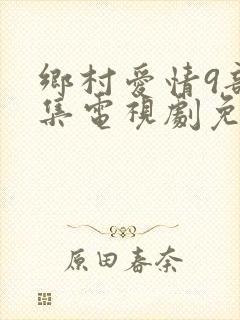 鄉村愛情9部
集電視劇免
原田春奈